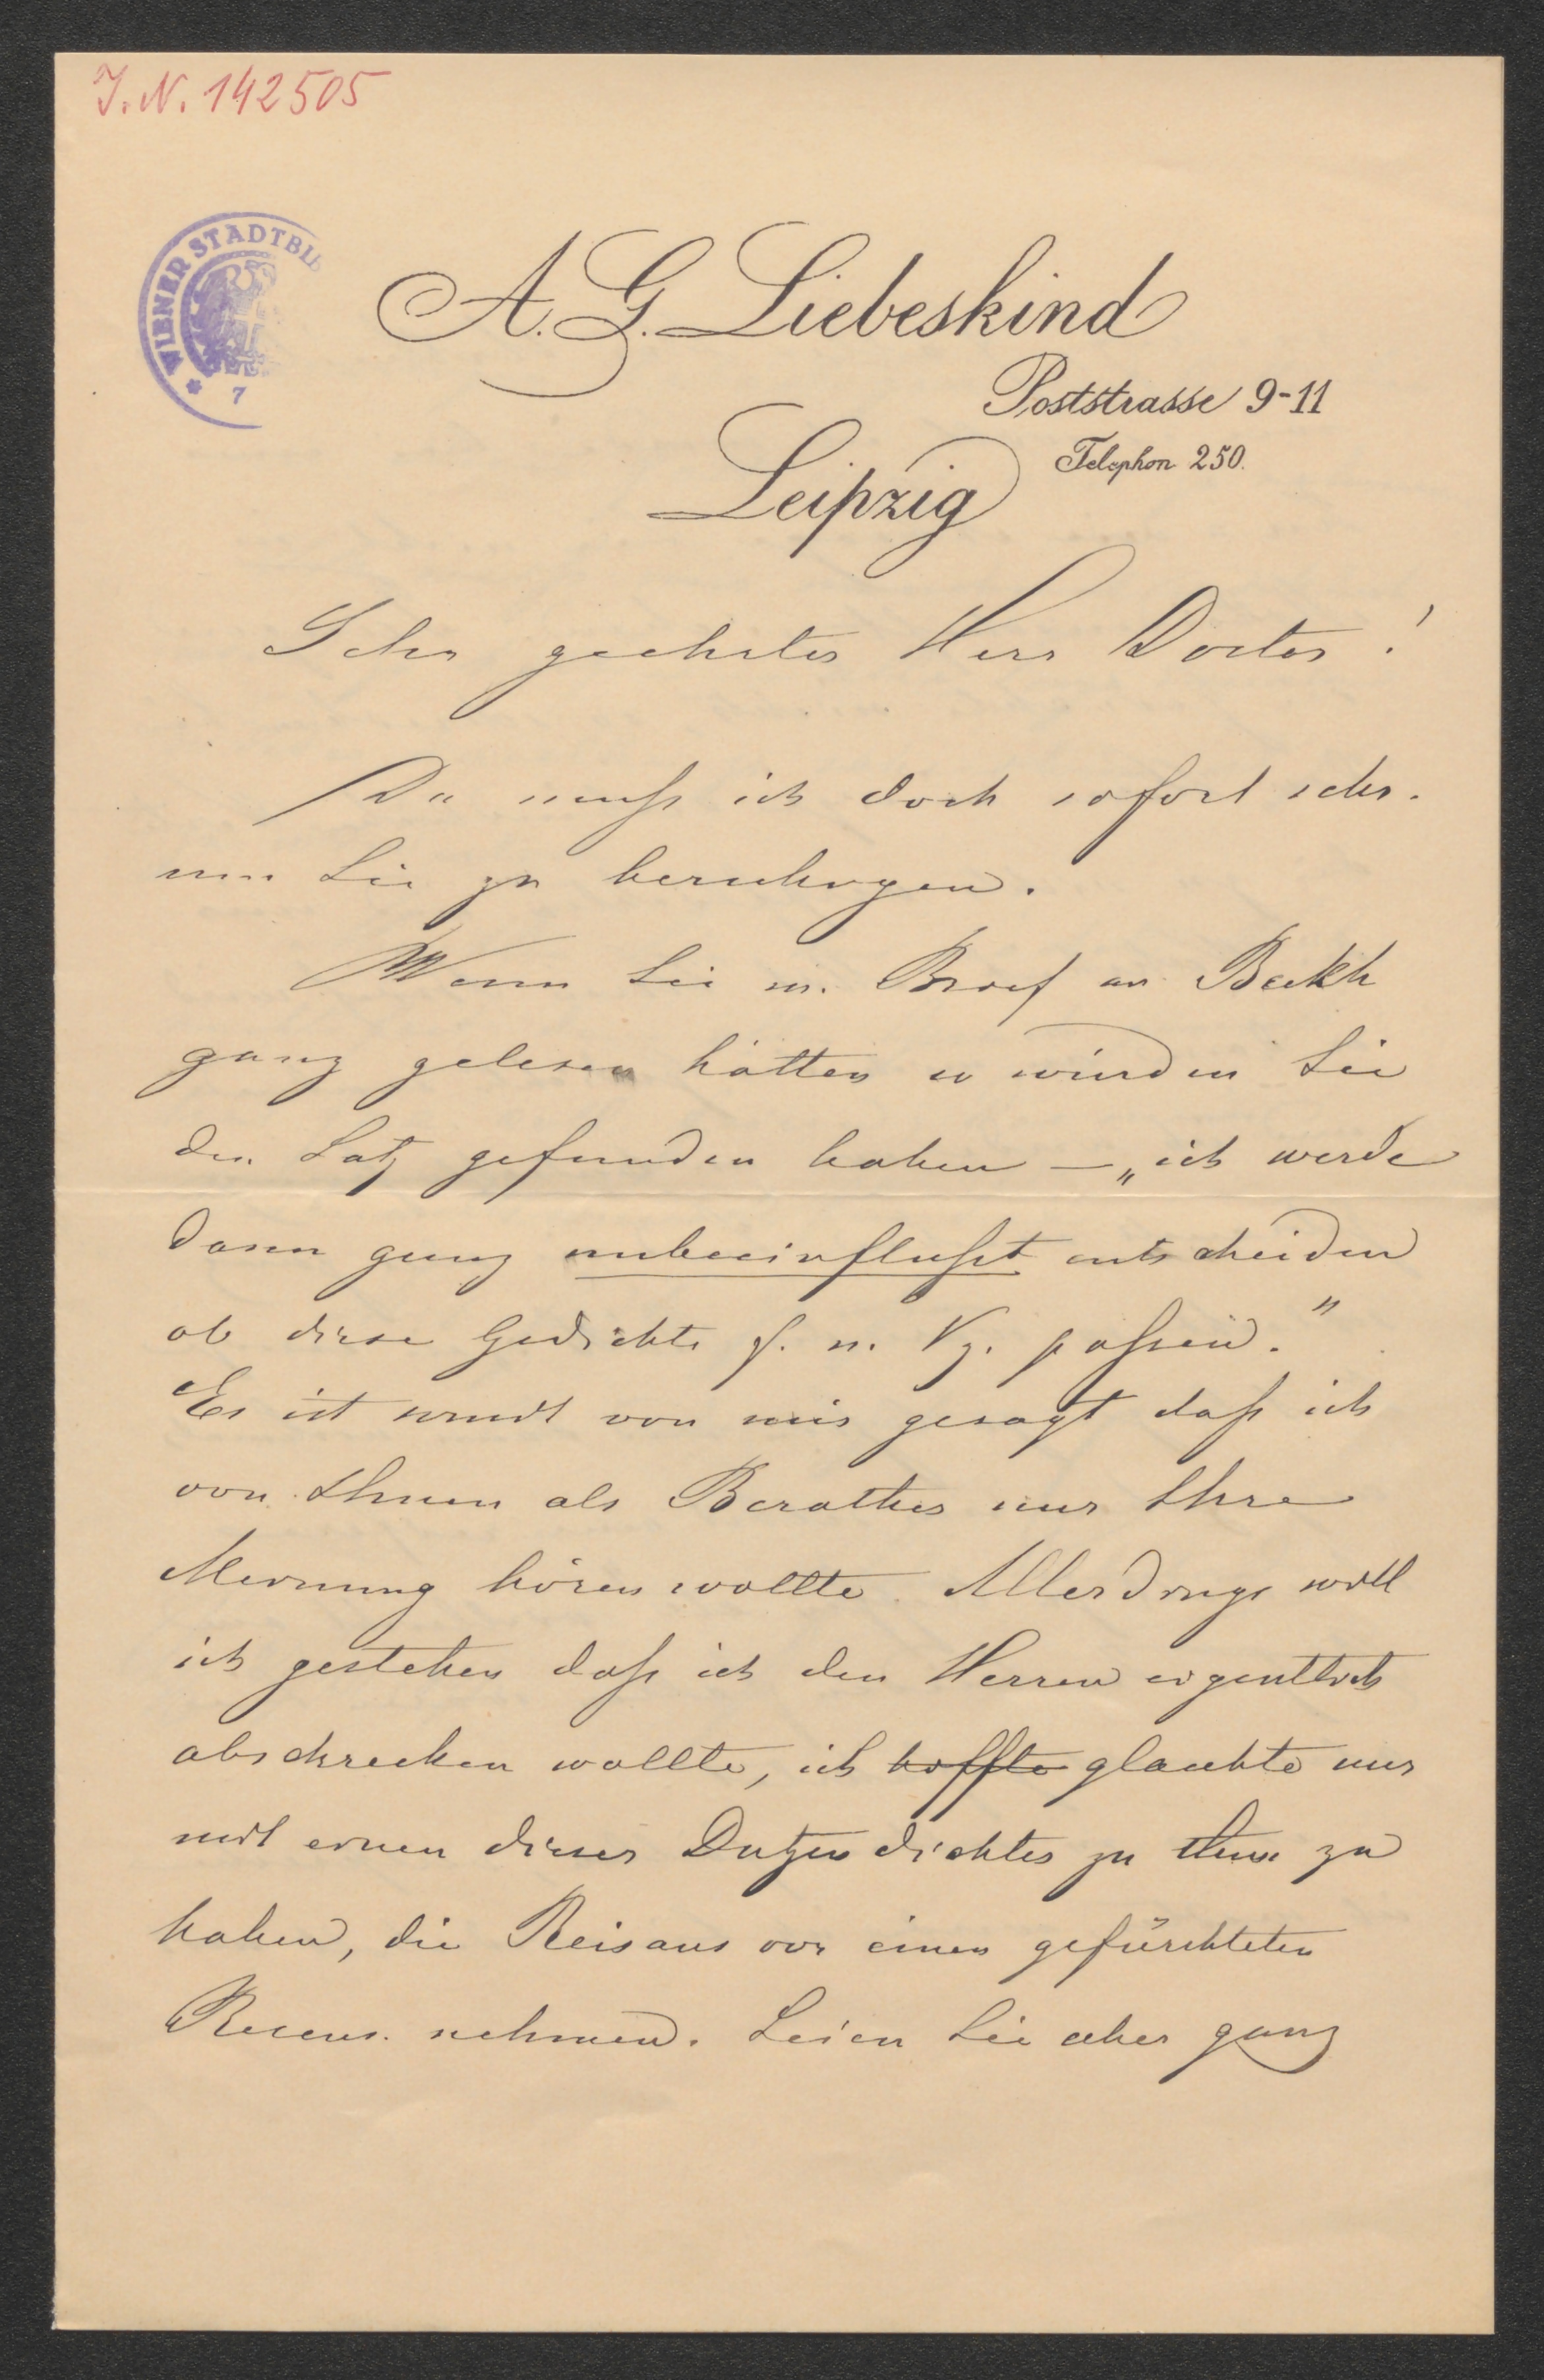 J. N. 142505
WIENER STADTBI
7
A. G. Liebeskind
Poststrasse 9-11
Telephon 250.
Leipzig
Sehr geehrter Herr Doctor!
Da muß ich doch sofort schr.
um Sie zu beruhigen.
Wenn Sie m. Brief an Beckh
ganz gelesen hätten so würden Sie
den Satz gefunden haben – „ich werde
dann ganz unbeeinflußt entscheiden
ob diese Gedichte f. m. Vg. passen."
Es ist somit von mir gesagt daß ich
von Ihnen als Berather nur Ihre
Meinung hören wollte. Allerdings will
ich gestehen daß ich den Herren eigentlich
abschrecken wollte, ich hoffte glaubte nur
mit einen dieser Dutzendichter zu thun zu
haben, die Reisaus vor einen gefürchteten
Recens. nehmen. Seien Sie aber ganz